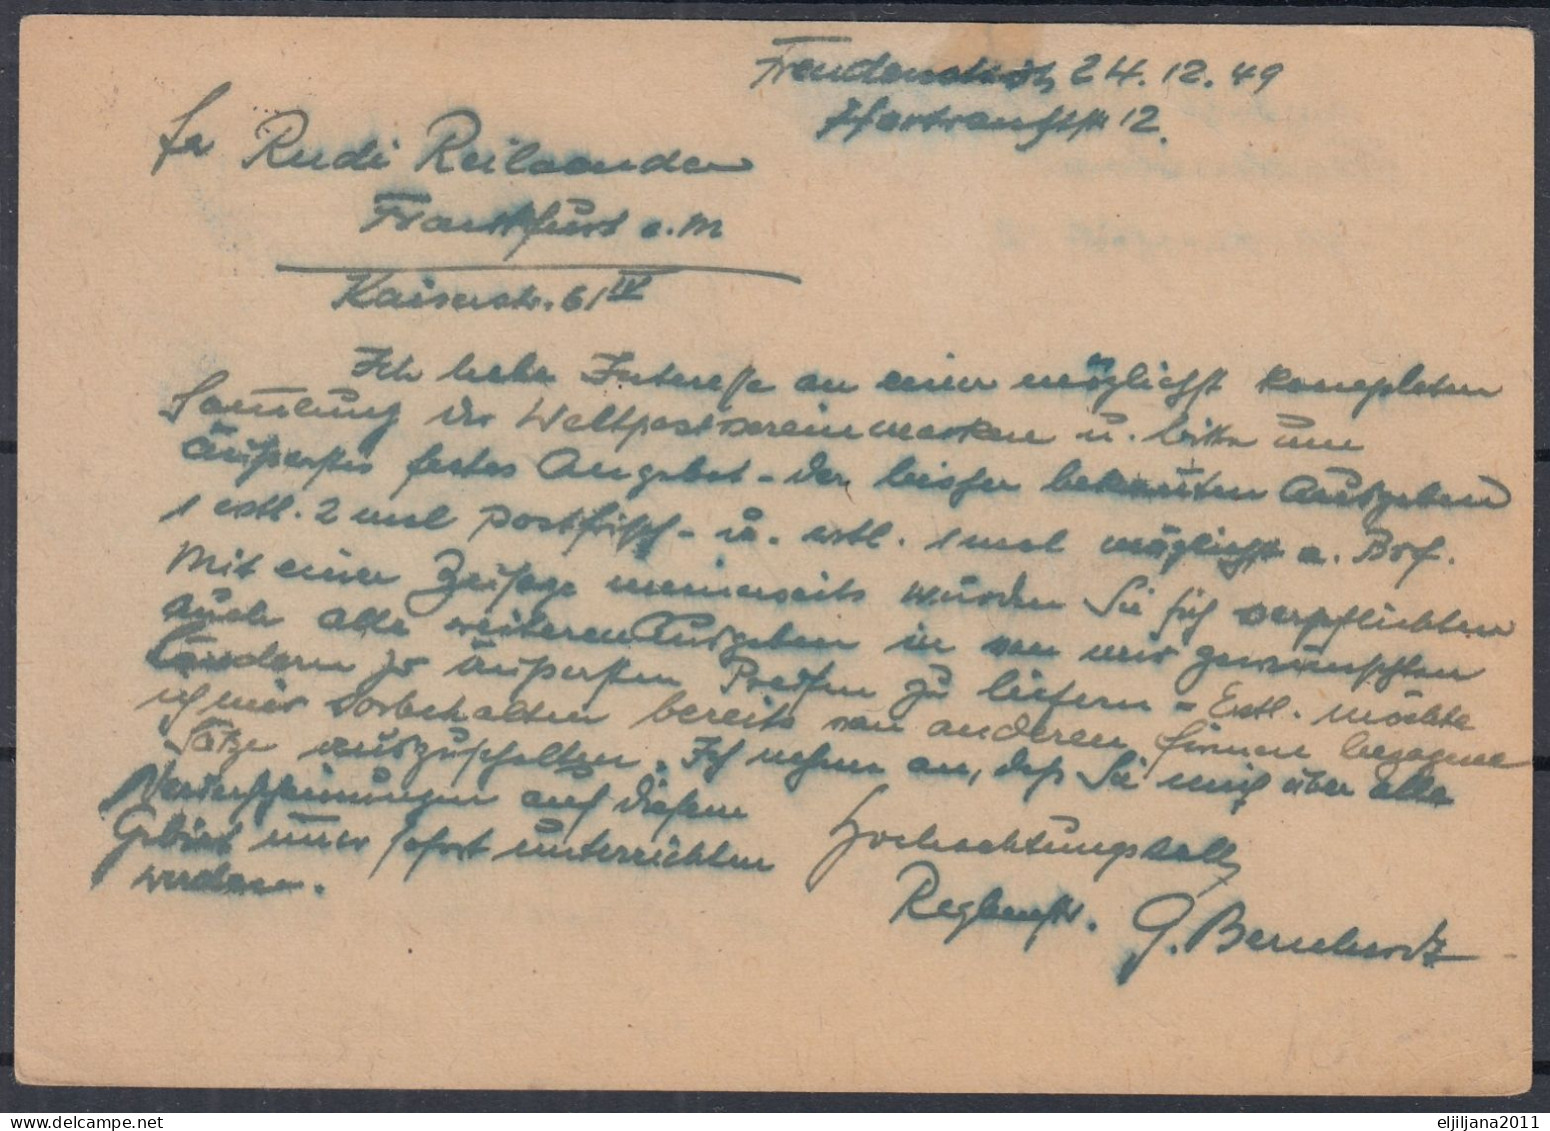 Freudenstadt, 24.12.49
12.
Fa Rudi
Frankfurt a. M
Kaiserstr. 61 IV
Ich habe Interesse an einer möglichst kompleten
Samlung der Weltpostvereinmarken u. bitte um
äußerstes festes Angebot - der bisher bekannten Ausgaben
1 evtl. 2 mal postfrisch - u. evtl. 1 mal möglichst a. Brf.
Mit einer Zusage meinerseits würden Sie sich verpflichten
auch alle weiteren Ausgaben in von mir gewünschten
Ländern zu äußersten Preisen zu liefern - Evtl. möchte
ich mir vorbehalten bereits von anderen Firmen bezogene
Sätze auszuschalten. Ich nehme an, daß Sie mich über alle
Neuerscheinungen auf diesem
Gebiet immer sofort unterrichten
werden.
Hochachtungsvoll
G.
eljiljana2011